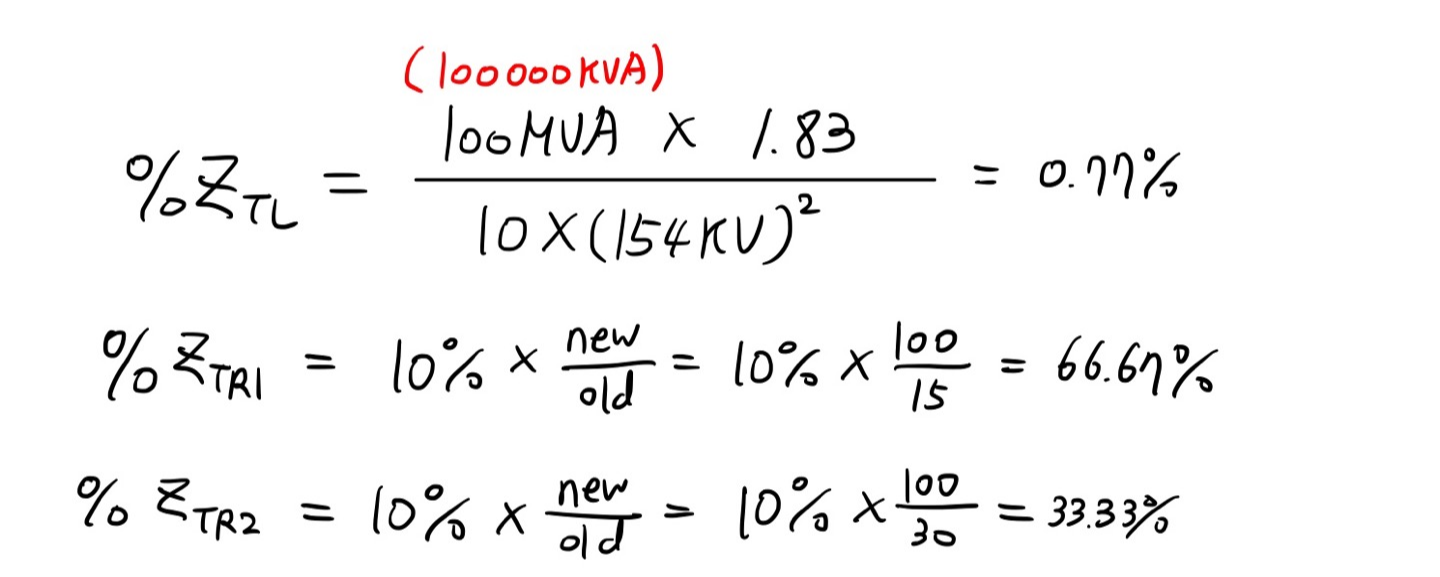 (100000KVA)
%Z_TL = (100MVA × 1.83) / (10×(154KV)²) = 0.77%
%Z_TR1 = 10% × new/old = 10% × 100/15 = 66.67%
%Z_TR2 = 10% × new/old = 10% × 100/30 = 33.33%